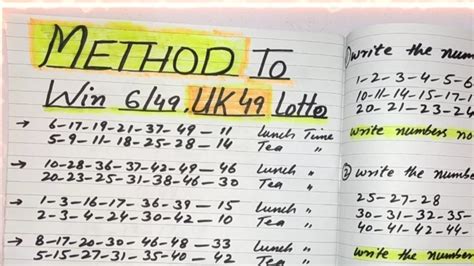 METHOD To
Win 6/49, UK 49 Lotto
→ 6-17-19-21-37-49-11 Lunch Time
5-9-11-18-25-28-14 Tea "
→ 10-28-36-37-42-49-46 Lunch "
20-23-25-31-38-46-30 Tea "
→ 1-3-16-17-36-39-15 Lunch "
2-3-4-24-30-42-10 Tea "
→ 8-17-20-30-46-48-33 Lunch "
5-15-27-31-35-40-42 Tea "
① write the num
1-2-3-4-5-6
10-11-14-15-17-1
20-21-23-24
write numbers no
② write the num
25-27-28
30-31-32-35-
40-41-42-44-
write the num